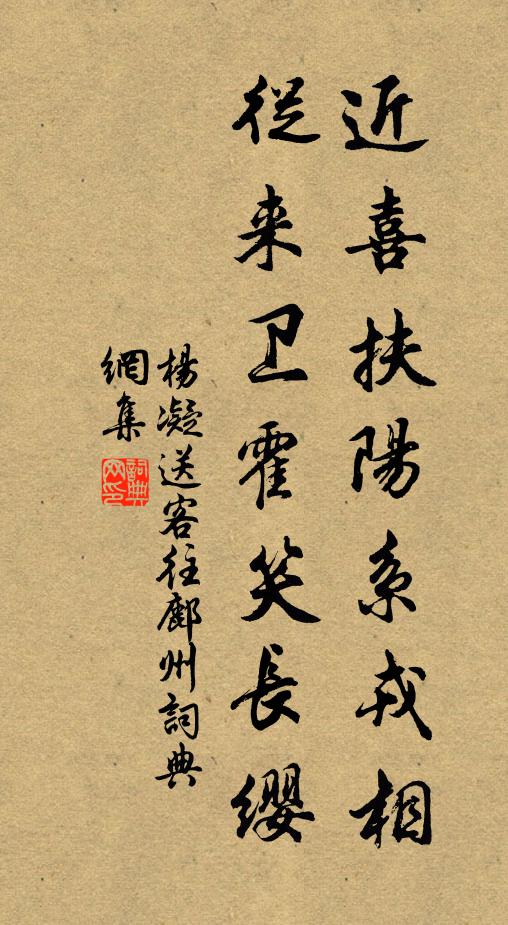 近喜扶陽系戎相
從来卫霍笑長缨
楊凝送客往鄜州詞典
網集
詞典
网印